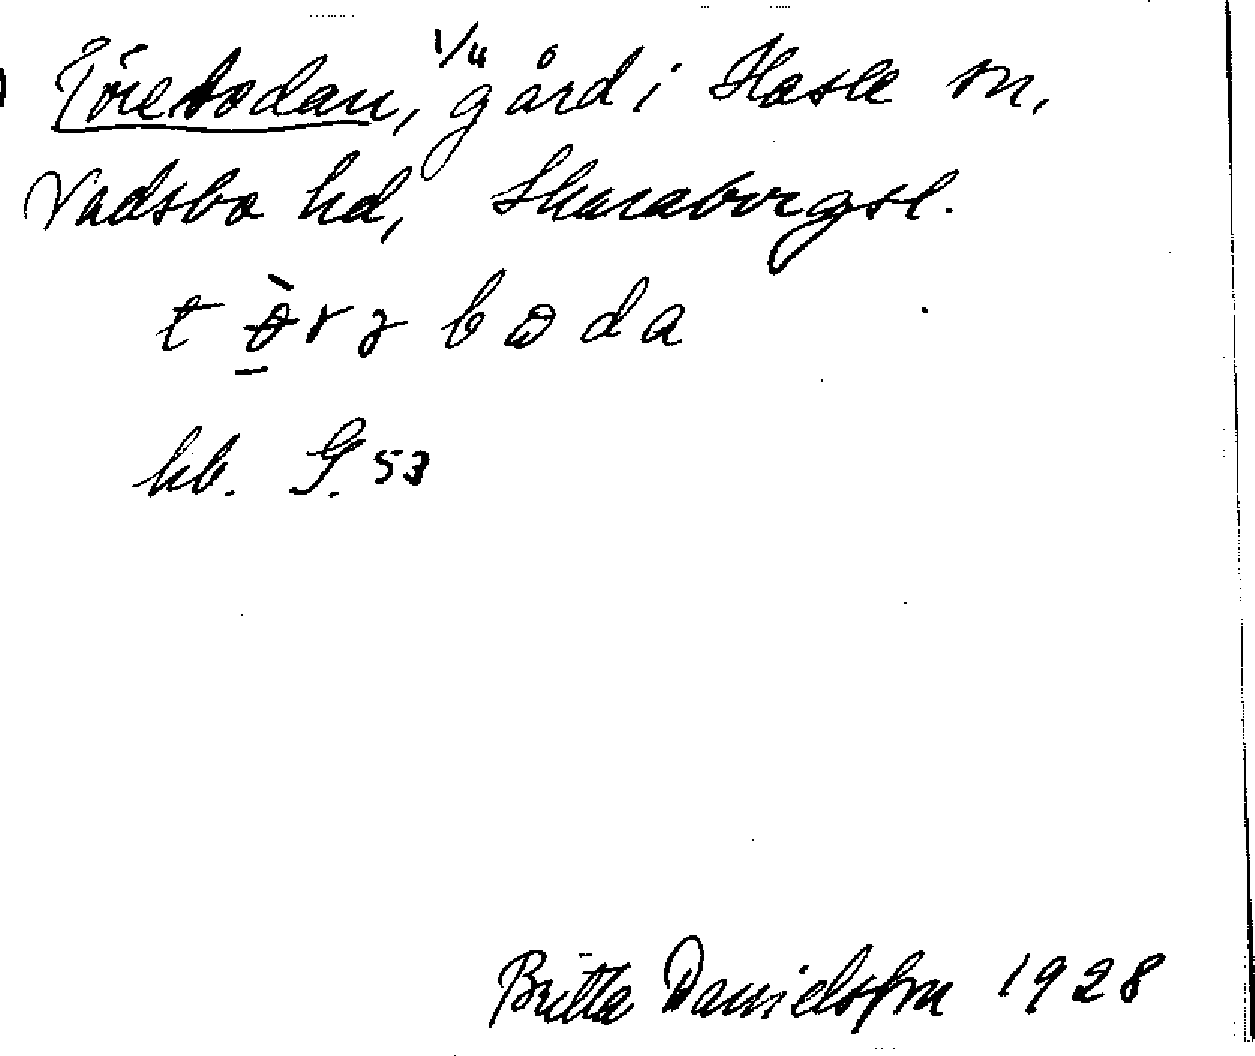 Törebodan, 1/4 gård i Hasle sn,
Vadsbo hd, Skaraborgsl.
t ö̀ r ɜ b ω d a
kb. G. 53
Britta Danielsson 1928